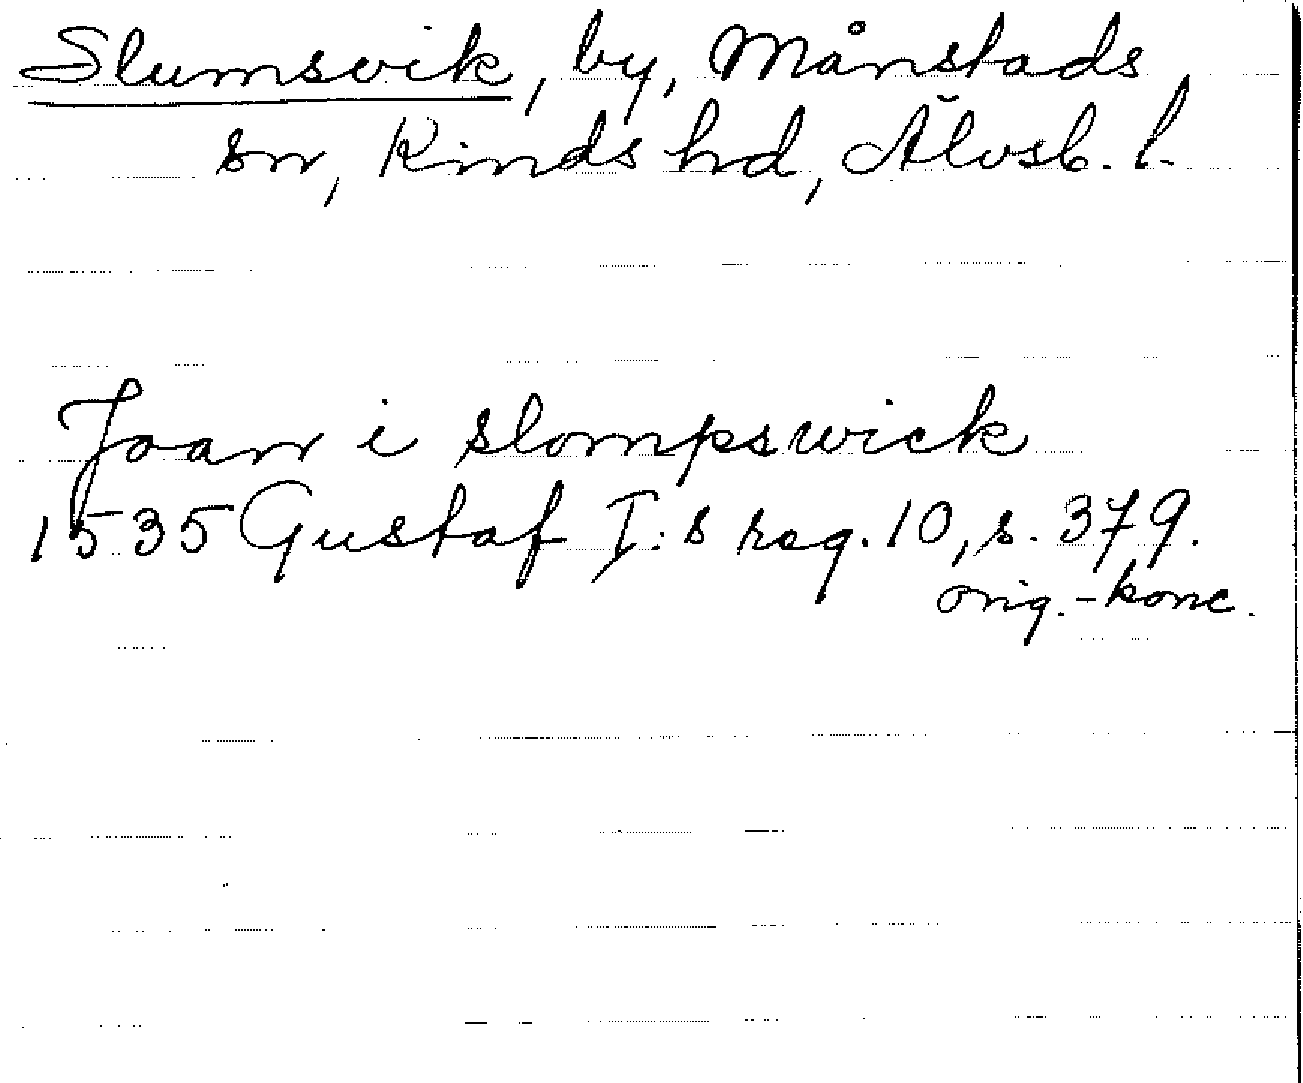 Slumsvik, by, Månstads
sn, Kinds hd, Älvsb. l.
Joan i slompswick
1535 Gustaf I:s reg. 10, s. 379.
orig.-konc.